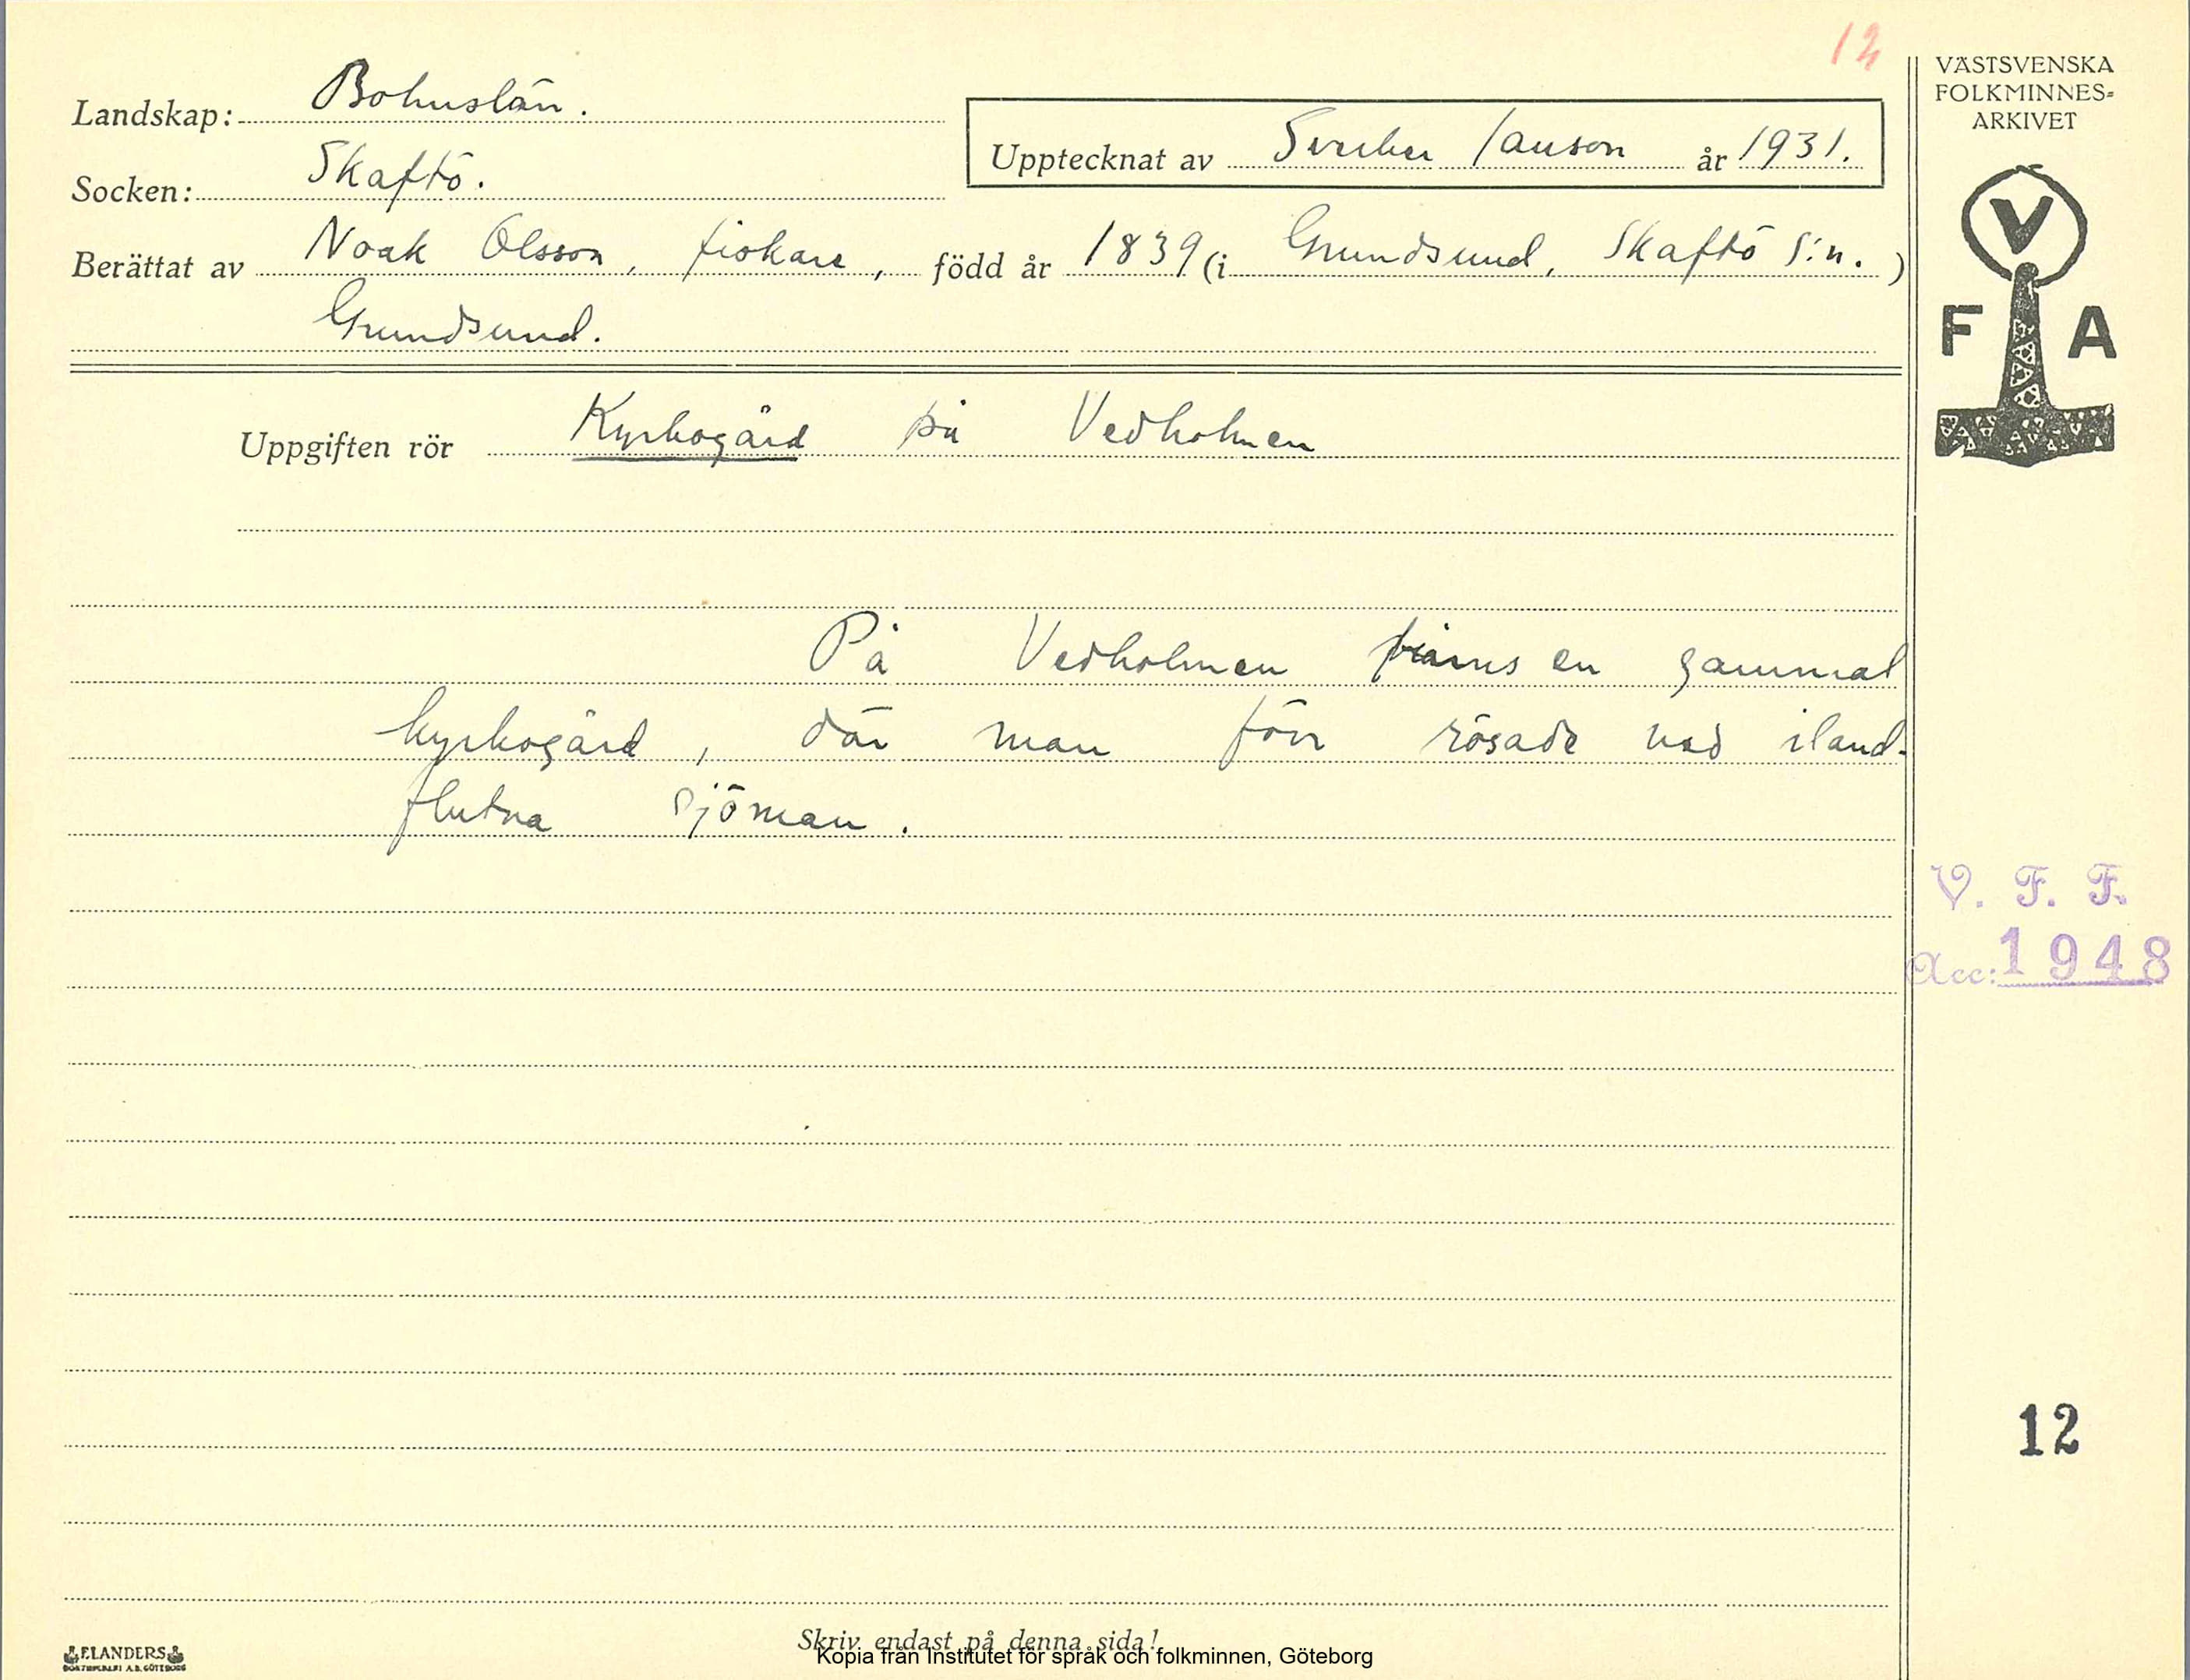 12
VÄSTSVENSKA
FOLKMINNES-
ARKIVET
Landskap: Bohuslän.
Upptecknat av Sverker Janson år 1931.
Socken: Skaftö.
Berättat av Noak Olsson, fiskare, född år 1839 (i Grundsund, Skaftö s:n.)
Grundsund.
V
F A
Uppgiften rör Kyrkogård på Vedholmen
På Vedholmen finns en gammal
kyrkogård, där man förr rösade ned iland-
flutna sjömän.
V. F. F.
Acc: 1948
12
Skriv endast på denna sida!
Kopia från Institutet för språk och folkminnen, Göteborg
ELANDERS
BOKTRYCKERI A.B. GÖTEBORG